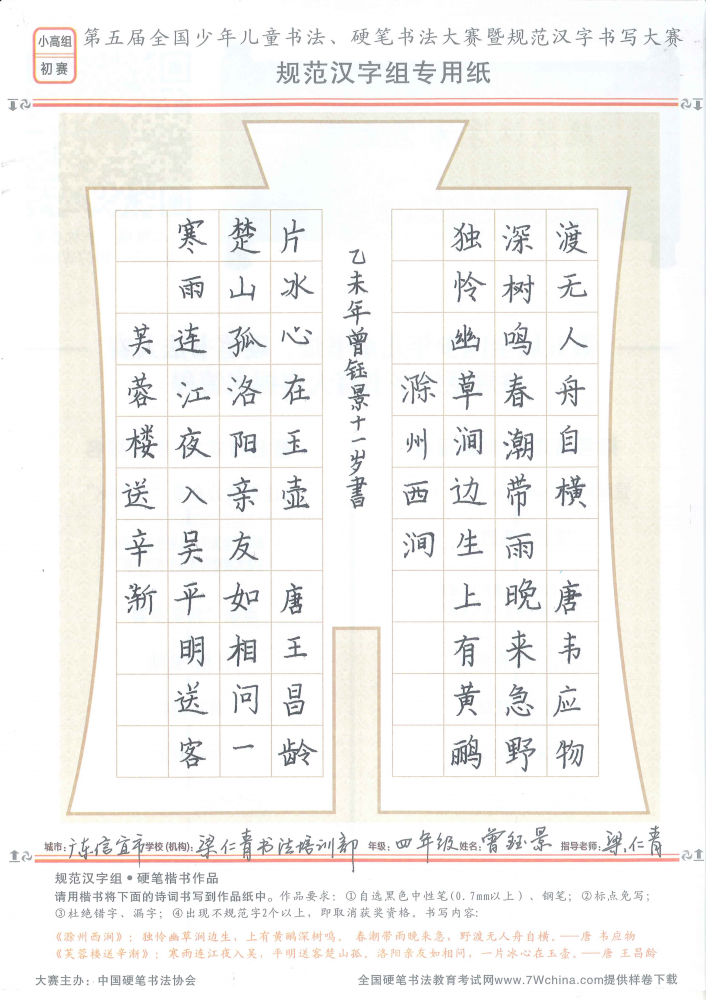 小高组
初赛
第五届全国少年儿童书法、硬笔书法大赛暨规范汉字书写大赛
规范汉字组专用纸
芙蓉楼送辛渐
寒雨连江夜入吴平明送客
楚山孤洛阳亲友如相问一
片冰心在玉壶 唐王昌龄
乙未年曾钰景十一岁書
滁州西涧
独怜幽草涧边生上有黄鹂
深树鸣春潮带雨晚来急野
渡无人舟自横 唐韦应物
城市:广东信宜市学校(机构):梁仁青书法培训部 年级:四年级姓名:曾钰景 指导老师:梁仁青
规范汉字组•硬笔楷书作品
请用楷书将下面的诗词书写到作品纸中。作品要求:①自选黑色中性笔(0.7mm以上)、钢笔;②标点免写;
③杜绝错字、漏字;④出现不规范字2个以上,即取消获奖资格。书写内容:
《滁州西涧》:独怜幽草涧边生,上有黄鹂深树鸣。 春潮带雨晚来急,野渡无人舟自横。——唐 韦应物
《芙蓉楼送辛渐》:寒雨连江夜入吴,平明送客楚山孤。洛阳亲友如相问,一片冰心在玉壶。——唐 王昌龄
大赛主办:中国硬笔书法协会
全国硬笔书法教育考试网www.7Wchina.com提供样卷下载